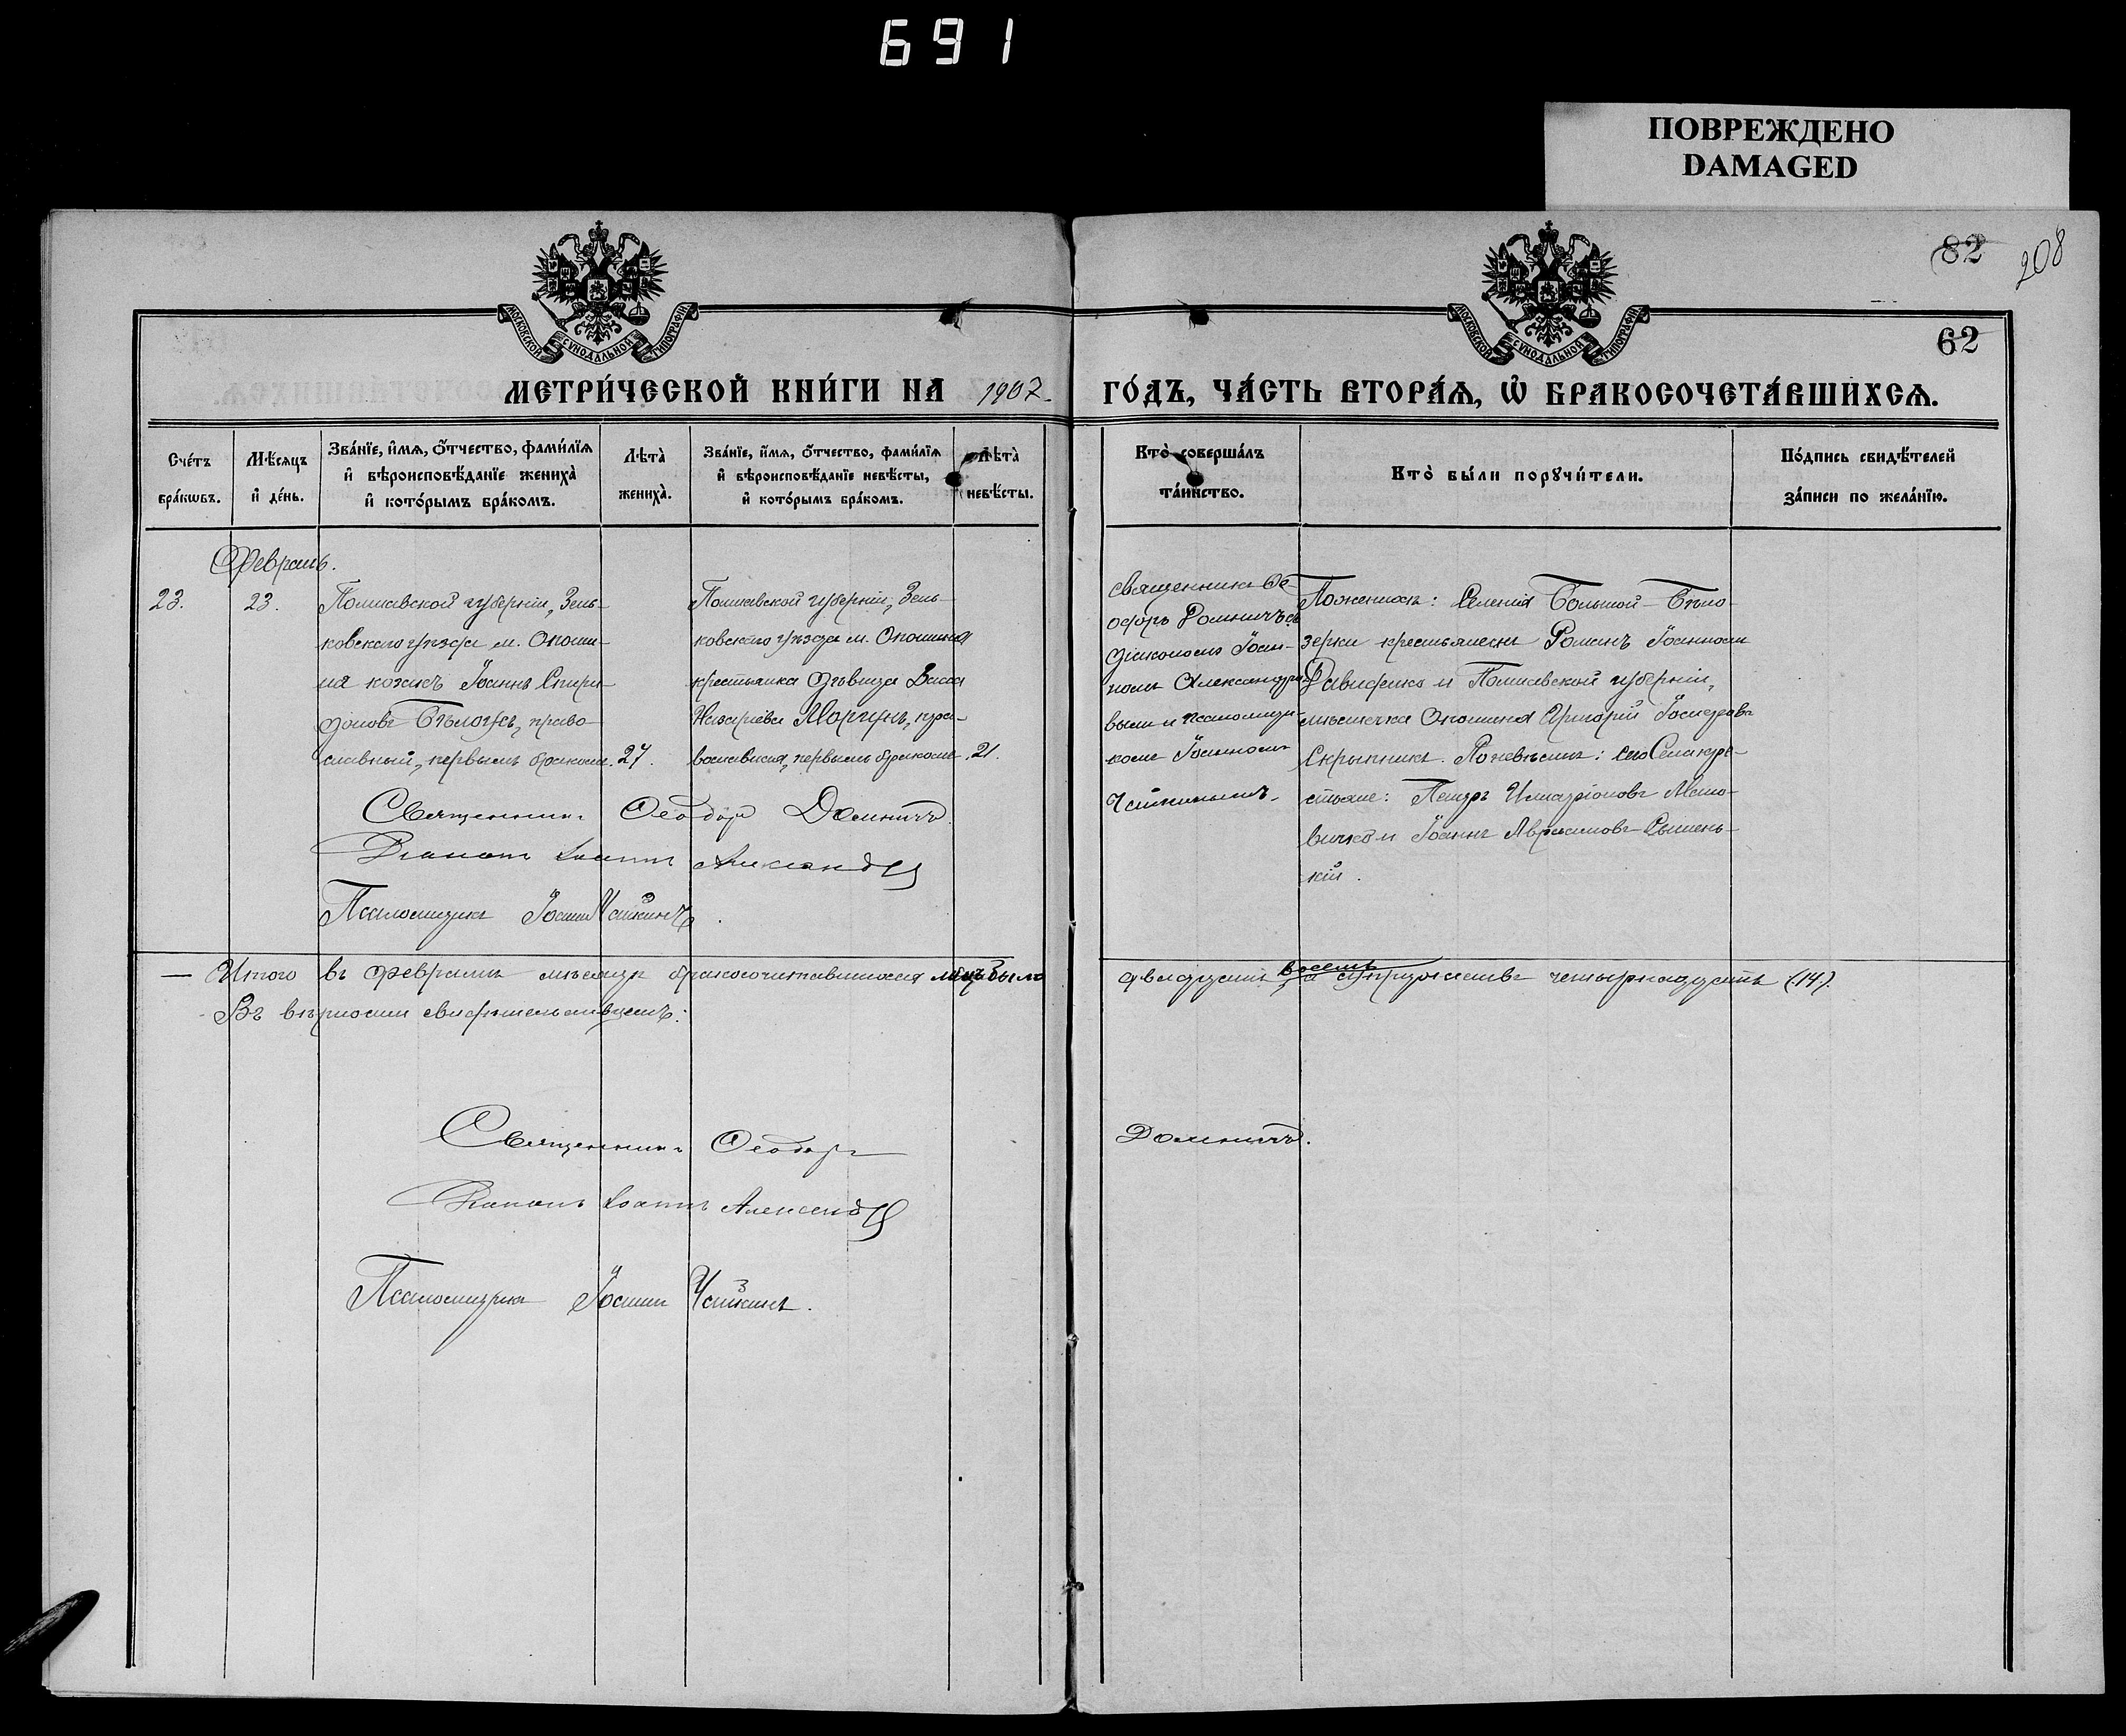 691
ПОВРЕЖДЕНО
DAMAGED
82 208
МОСКОВСКОЙ СѴНОДАЛЬНОЙ ТИПОГРАФІИ
МОСКОВСКОЙ СѴНОДАЛЬНОЙ ТИПОГРАФІИ
62
МЕТРИ́ЧЕСКОЙ КНИ́ГИ НА 1907 ГО́ДЪ, ЧА́СТЬ ВТОРА́Ѧ, Ѡ҆ БРАКОСОЧЕТА́ВШИХСѦ.
Сче́тъ бра́кѡвъ.
Мѣ́сяцъ и҆ де́нь.
Зва́нїе, и҆́мѧ, ѻ҆́тчество, фами́лїѧ
и҆ вѣроисповѣ́данїе жениха̀
и҆ кото́рымъ бра́комъ.
Лѣта̀ жениха̀.
Зва́нїе, и҆́мѧ, ѻ҆́тчество, фами́лїѧ
и҆ вѣроисповѣ́данїе невѣ́сты,
и҆ кото́рымъ бра́комъ.
Лѣта̀ невѣ́сты.
Кто̀ соверша́лъ та́инство.
Кто̀ бы́ли порꙋчи́тели.
По́дпись свидѣ́телей за́писи по жела́нїю.
Февраль.
23.
23.
Полтавской губерніи, Зень-
ковскаго уѣзда м. Опоши-
ня козакъ Іоаннъ Спири-
доновъ Бѣлоусъ, право-
славный, первымъ бракомъ.
27.
Полтавской губерніи, Зень-
ковскаго уѣзда м. Опошня
крестьянка дѣвица Васса
Назаріева Моргунъ, пра-
вославная, первымъ бракомъ.
21.
Священникъ Ѳе-
одоръ Домничъ съ
діакономъ Іоан-
номъ Александро-
вымъ и псаломщи-
комъ Іоанномъ
Чайкинымъ.
По женихѣ: Селенія Большой-Бѣло-
зерки крестьянинъ Романъ Іоанновъ
Давиденко и Полтавской губерніи,
мѣстечка Опошня Григорій
Скрыпникъ. По невѣстѣ: сего Села кре-
стьяне: Петръ Иларіоновъ
и Іоаннъ Авраамовъ
кій.
Священникъ Ѳеодоръ Домничъ.
Діаконъ Іоаннъ Александровъ
Псаломщикъ Іоаннъ Чайкинъ.
— Итого въ февралѣ мѣсяцѣ бракосочетавшихся лицъ было двадцать восемь, а супружествъ четырнадцать (14).
Въ вѣрности свидѣтельствуемъ:
Священникъ Ѳеодоръ Домничъ.
Діаконъ Іоаннъ Александровъ
Псаломщикъ Іоаннъ Чайкинъ.